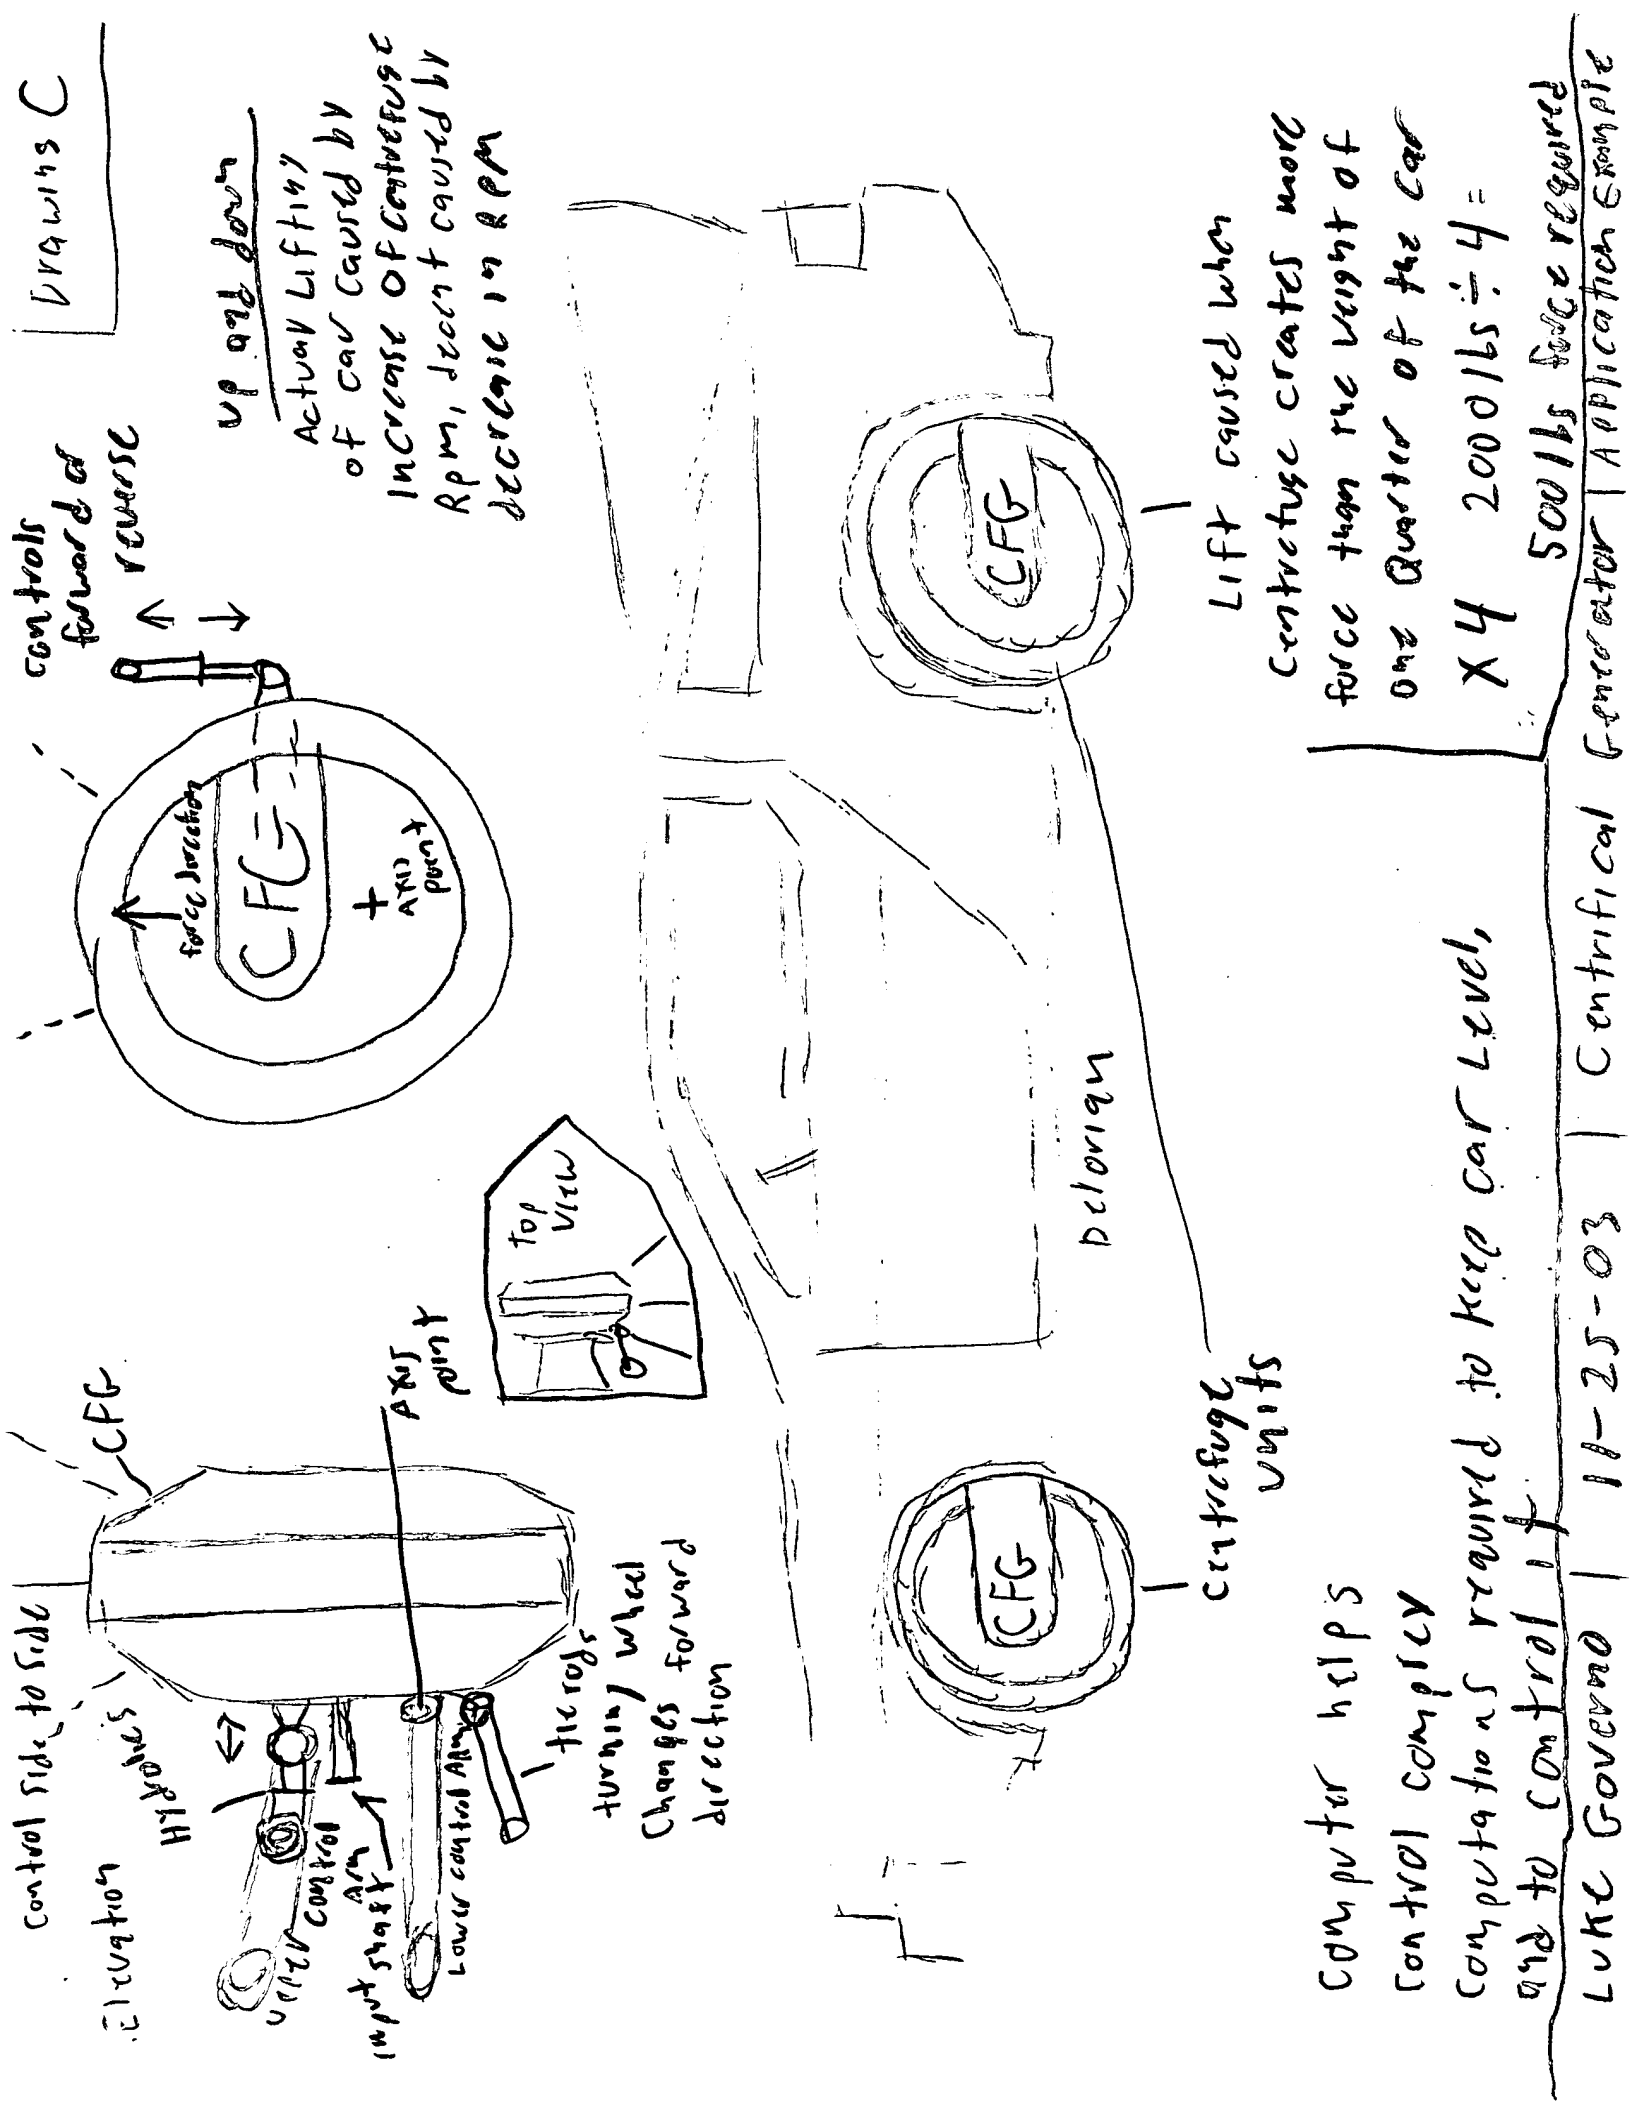 Drawing C
Control side to side
Elevation
Hydrolics
CFG
Upper
Control
Arm
input shaft
Lower control Arm
Axis
point
tie rods
turning wheel
Changes forward
direction
TOP
VIEW
controls
forward or
reverse
force direction
CFG
Axis
point
up and down
Actual Lifting
of car caused by
increase of centrefuge
Rpm, decent caused by
decrease in RPM
CFG
CFG
Delorian
Centrefuge
units
Lift caused when
Centrefuge creates more
force than the weight of
one Quarter of the car
X4 2000 lbs ÷ 4 =
500 lbs force required
Computer helps
control complex
Computations required to keep car Level,
and to control it
Luke Governo | 11-25-03 | Centrifical Generator | Application Example